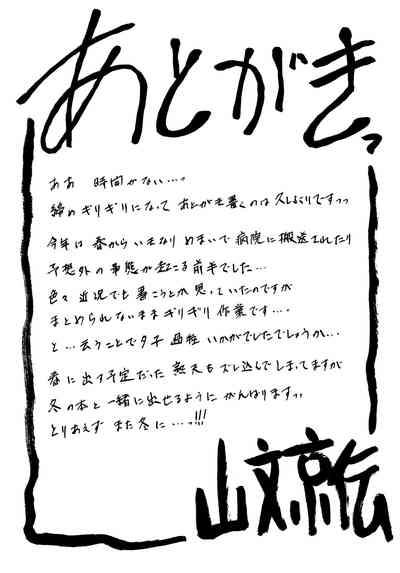 あとがきっ
ああ 時間がない…っ
締めギリギリになって あとがき書くのは 久しぶりですっっ
今年は 春から いきなり めまいで 病院に 搬送されたり
予想外の 事態が起こる 前半でした…
色々 近況でも 書こうとか 思っていたのですが
まとめられないまま ギリギリ 作業です…。
と…云うことで タ子 いかがでしたでしょうか…
春に 出す予定だった 新えも ズレ込んで しまってますが
冬の本と 一緒に 出せるように がんばりますっ。
とりあえず また 冬に…っ!!!
山文京伝